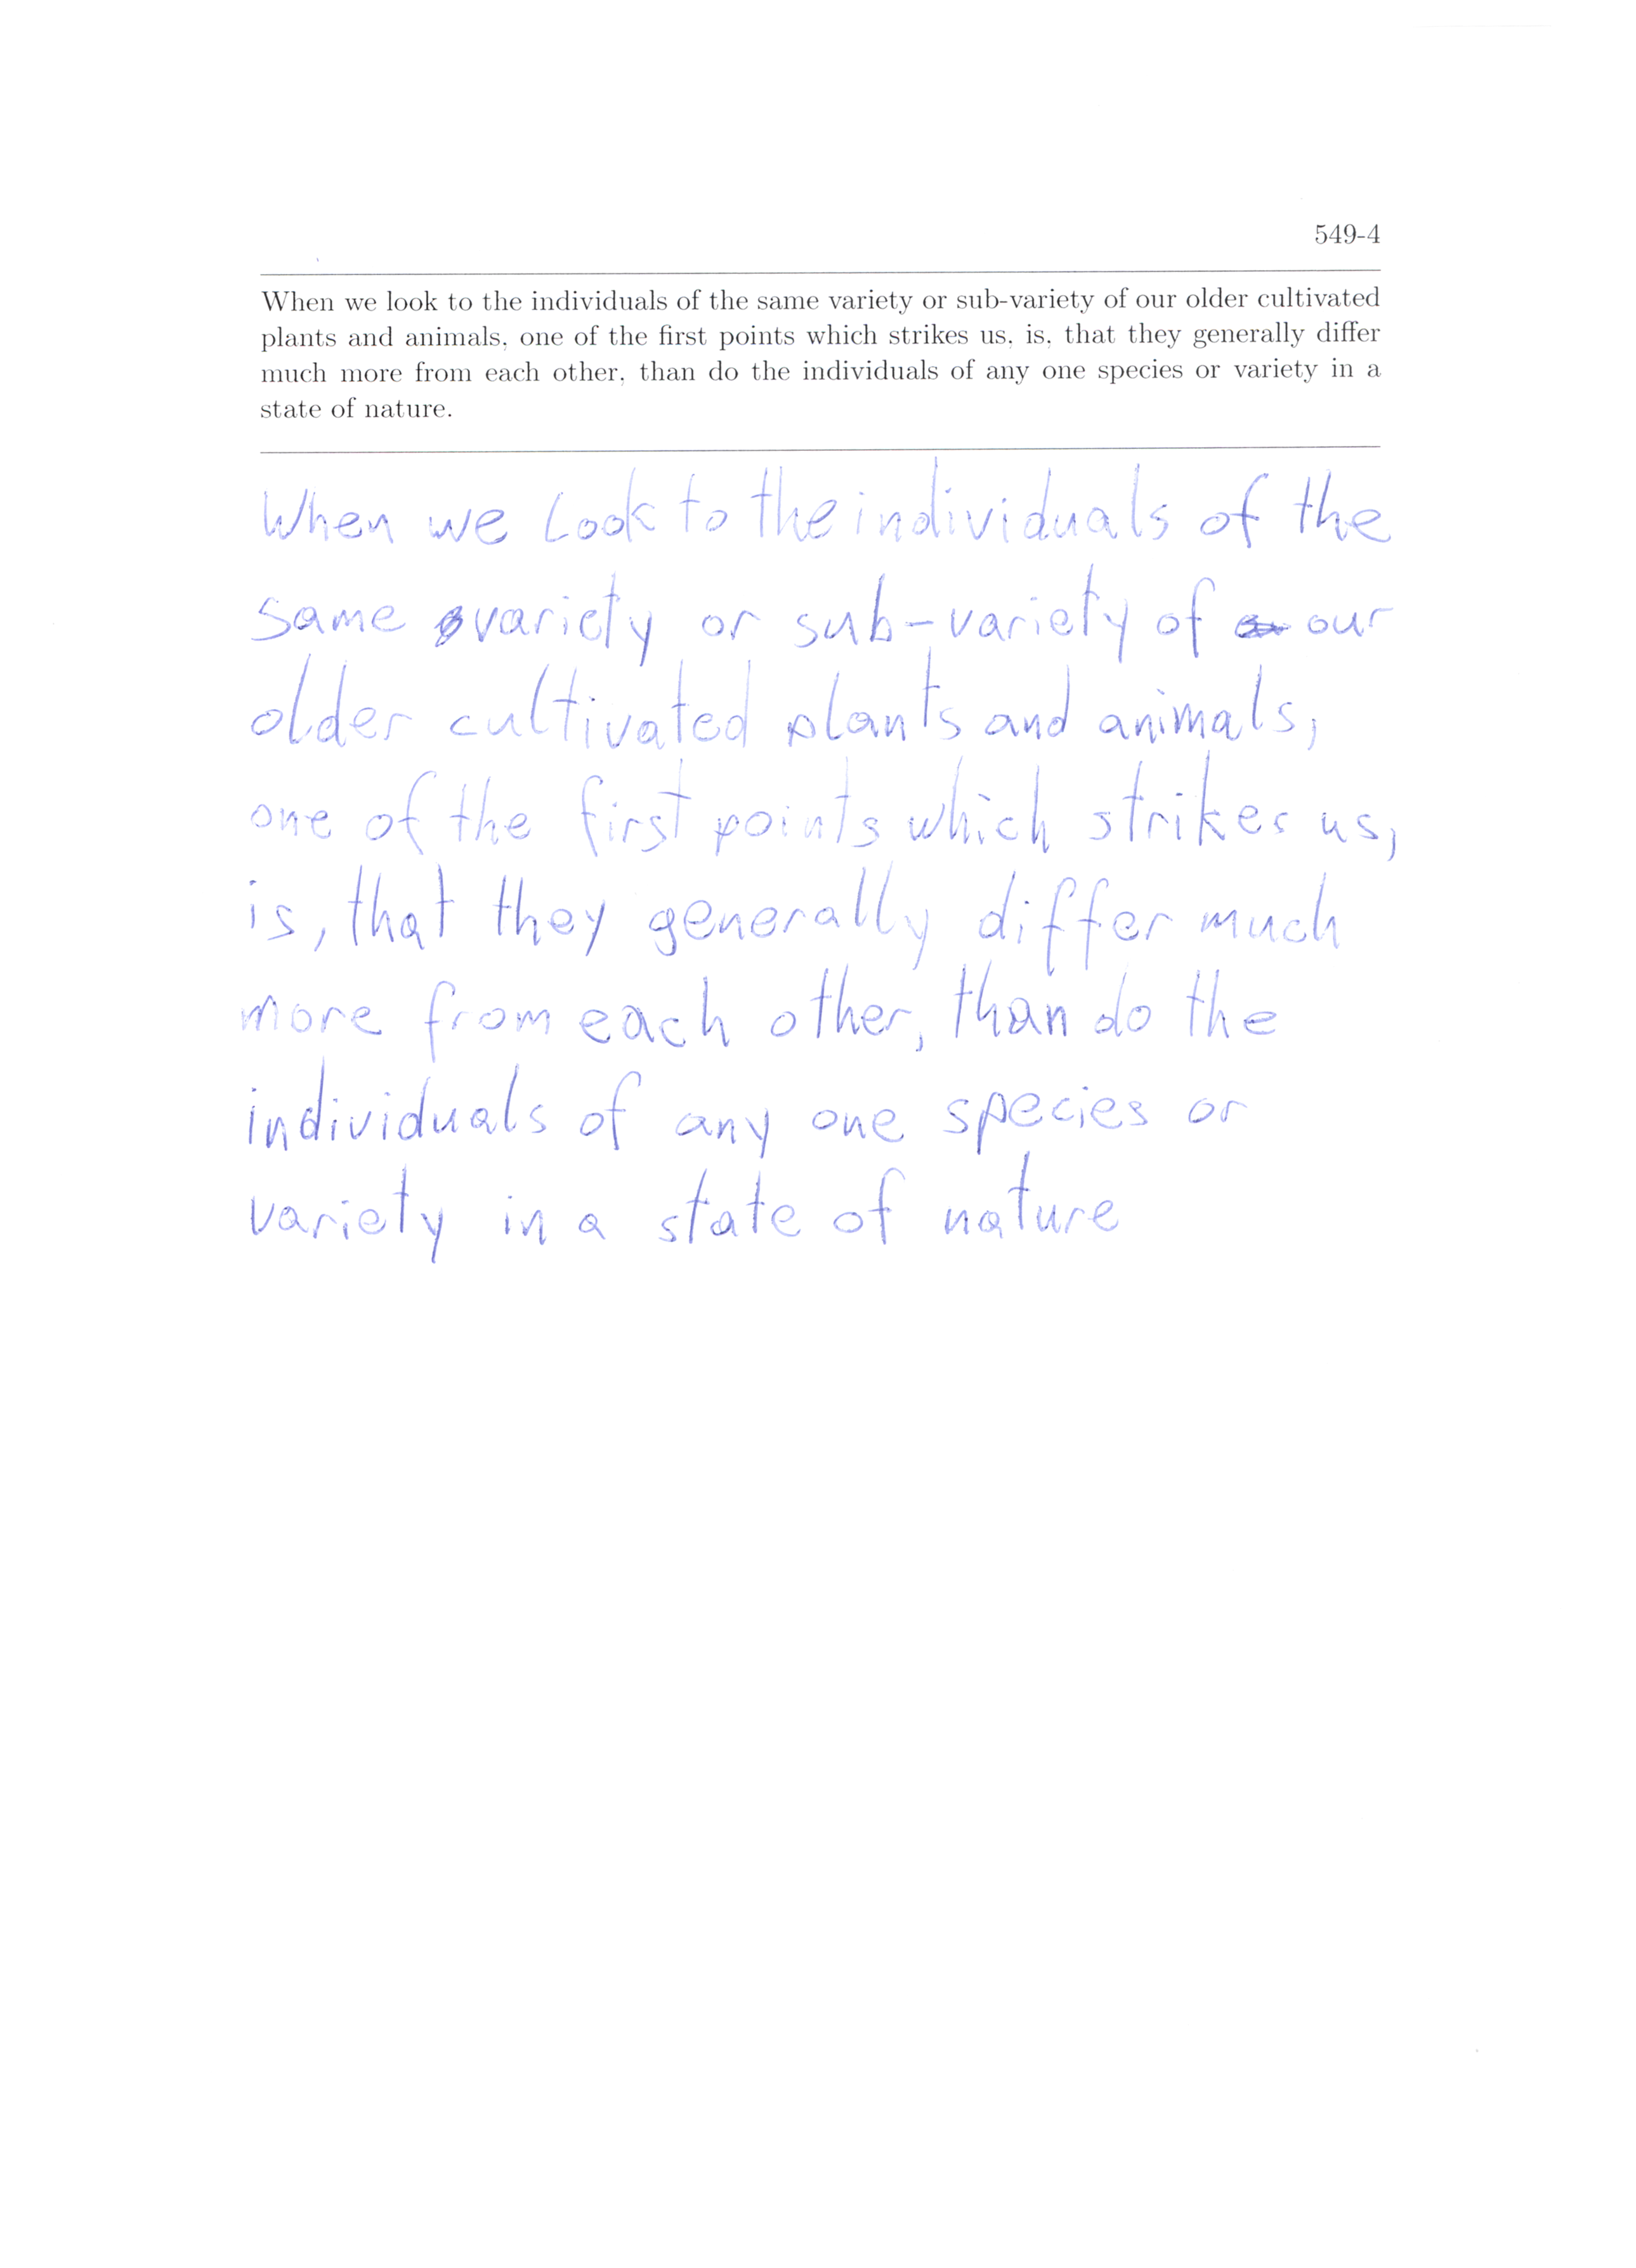 549-4
When we look to the individuals of the same variety or sub-variety of our older cultivated
plants and animals, one of the first points which strikes us, is, that they generally differ
much more from each other, than do the individuals of any one species or variety in a
state of nature.
When we Look to the individuals of the
same variety or sub-variety of our
older cultivated plants and animals,
one of the first points which strikes us,
is, that they generally differ much
more from each other, than do the
individuals of any one species or
variety in a state of nature